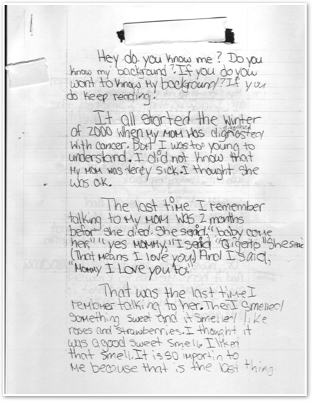 Hey do you know me? Do you
know my background? If you do you
want to know my background? If you
do keep reading.
It all started the winter
of 2000 when my mom was diagnosted
with cancer. But I was to young to
understand. I did not know that
my mom was really sick. I thought she
was ok.
The last time I remember
talking to my mom was 2 months
befor she died. She said, "baby come
her," "yes mommy." I said "She said
(That means I love you) And I said,
"Mommy I Love you to."
That was the last time I
remember talking to her. Then I smelled
something sweet and it smelled like
roses and strawberries. I thought it
was a good sweet smell. I liked
that smell. It is so importin to
me because that is the last thing